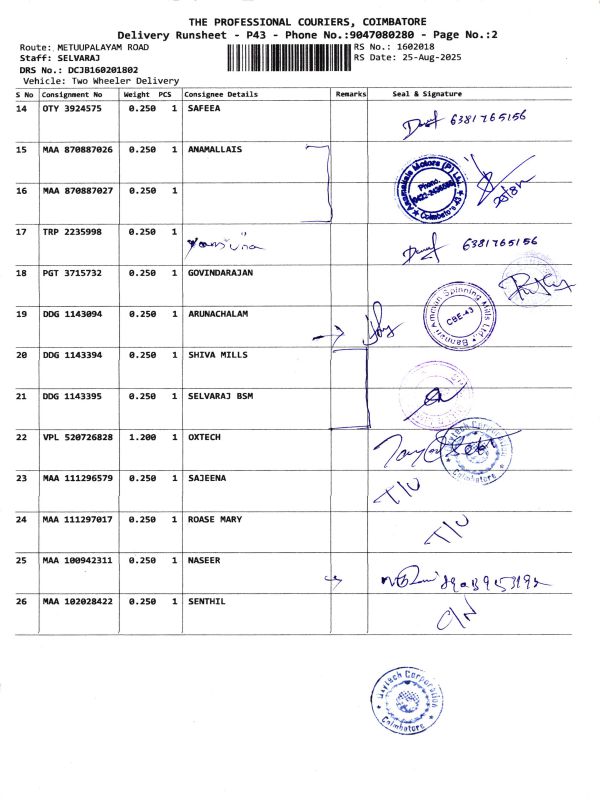 THE PROFESSIONAL COURIERS, COIMBATORE
Delivery Runsheet - P43 - Phone No.:9047080280 - Page No.:2
Route: METUUPALAYAM ROAD RS No.: 1602018
Staff: SELVARAJ RS Date: 25-Aug-2025
DRS No.: DCJB160201802
Vehicle: Two Wheeler Delivery
S No Consignment No Weight PCS Consignee Details Remarks Seal & Signature
14 OTY 3924575 0.250 1 SAFEEA 6381765156
15 MAA 870887026 0.250 1 ANAMALLAIS
Anamallais Motors (P) Ltd. Phone. Coimbatore
16 MAA 870887027 0.250 1
17 TRP 2235998 0.250 1 6381765156
18 PGT 3715732 0.250 1 GOVINDARAJAN
19 DDG 1143094 0.250 1 ARUNACHALAM
Bannari Amman Spinning Mills Ltd., CBE-43
20 DDG 1143394 0.250 1 SHIVA MILLS
21 DDG 1143395 0.250 1 SELVARAJ BSM
22 VPL 520726828 1.200 1 OXTECH
Oxytech Corporation Coimbatore
23 MAA 111296579 0.250 1 SAJEENA T/U
24 MAA 111297017 0.250 1 ROASE MARY T/U
25 MAA 100942311 0.250 1 NASEER
26 MAA 102028422 0.250 1 SENTHIL O/N
Oxytech Corporation Coimbatore